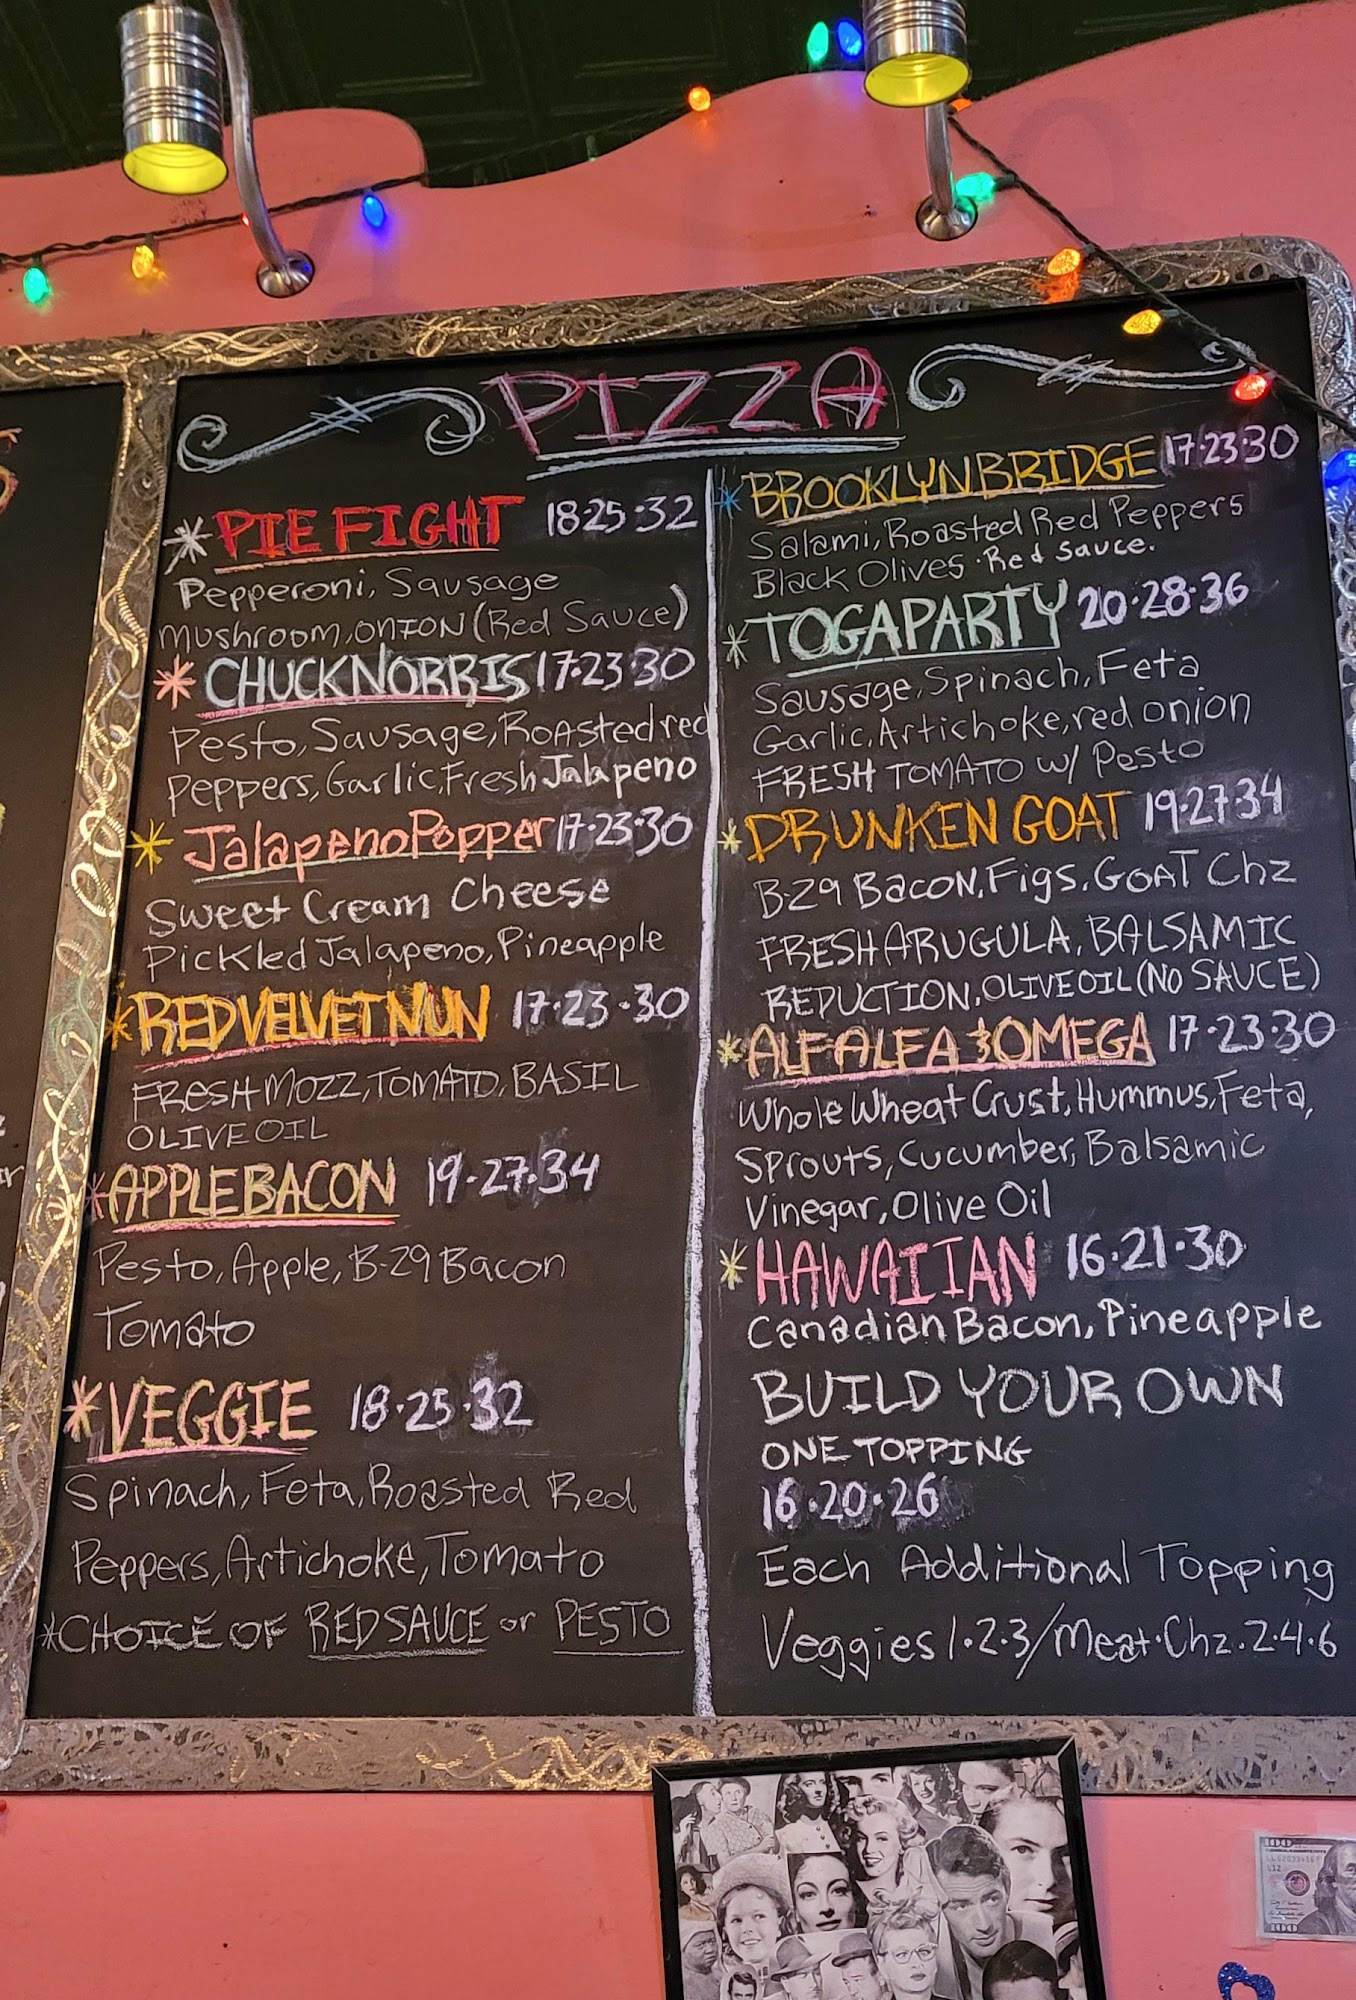 PIZZA
PIE FIGHT 18·25·32
Pepperoni, Sausage
Mushroom, ONION (Red Sauce)
CHUCK NORRIS 17·23·30
Pesto, Sausage, Roasted red
Peppers, Garlic, Fresh Jalapeno
Jalapeno Popper 17·23·30
Sweet Cream Cheese
Pickled Jalapeno, Pineapple
RED VELVET NUN 17·23·30
FRESH MOZZ, TOMATO, BASIL
OLIVE OIL
APPLE BACON 19·27·34
Pesto, Apple, B-29 Bacon
Tomato
VEGGIE 18·25·32
Spinach, Feta, Roasted Red
Peppers, Artichoke, Tomato
*CHOICE OF RED SAUCE or PESTO
BROOKLYN BRIDGE 17·23·30
Salami, Roasted Red Peppers
Black Olives · Red Sauce.
TOGA PARTY 20·28·36
Sausage, Spinach, Feta
Garlic, Artichoke, red onion
FRESH TOMATO w/ Pesto
DRUNKEN GOAT 19·27·34
B-29 Bacon, Figs, GOAT Chz
FRESH ARUGULA, BALSAMIC
REDUCTION, OLIVE OIL (NO SAUCE)
ALFALFA & OMEGA 17·23·30
Whole Wheat Crust, Hummus, Feta,
Sprouts, Cucumber, Balsamic
Vinegar, Olive Oil
HAWAIIAN 16·21·30
Canadian Bacon, Pineapple
BUILD YOUR OWN
ONE TOPPING
16·20·26
Each Additional Topping
Veggies 1·2·3/Meat·Chz·2·4·6
100
100